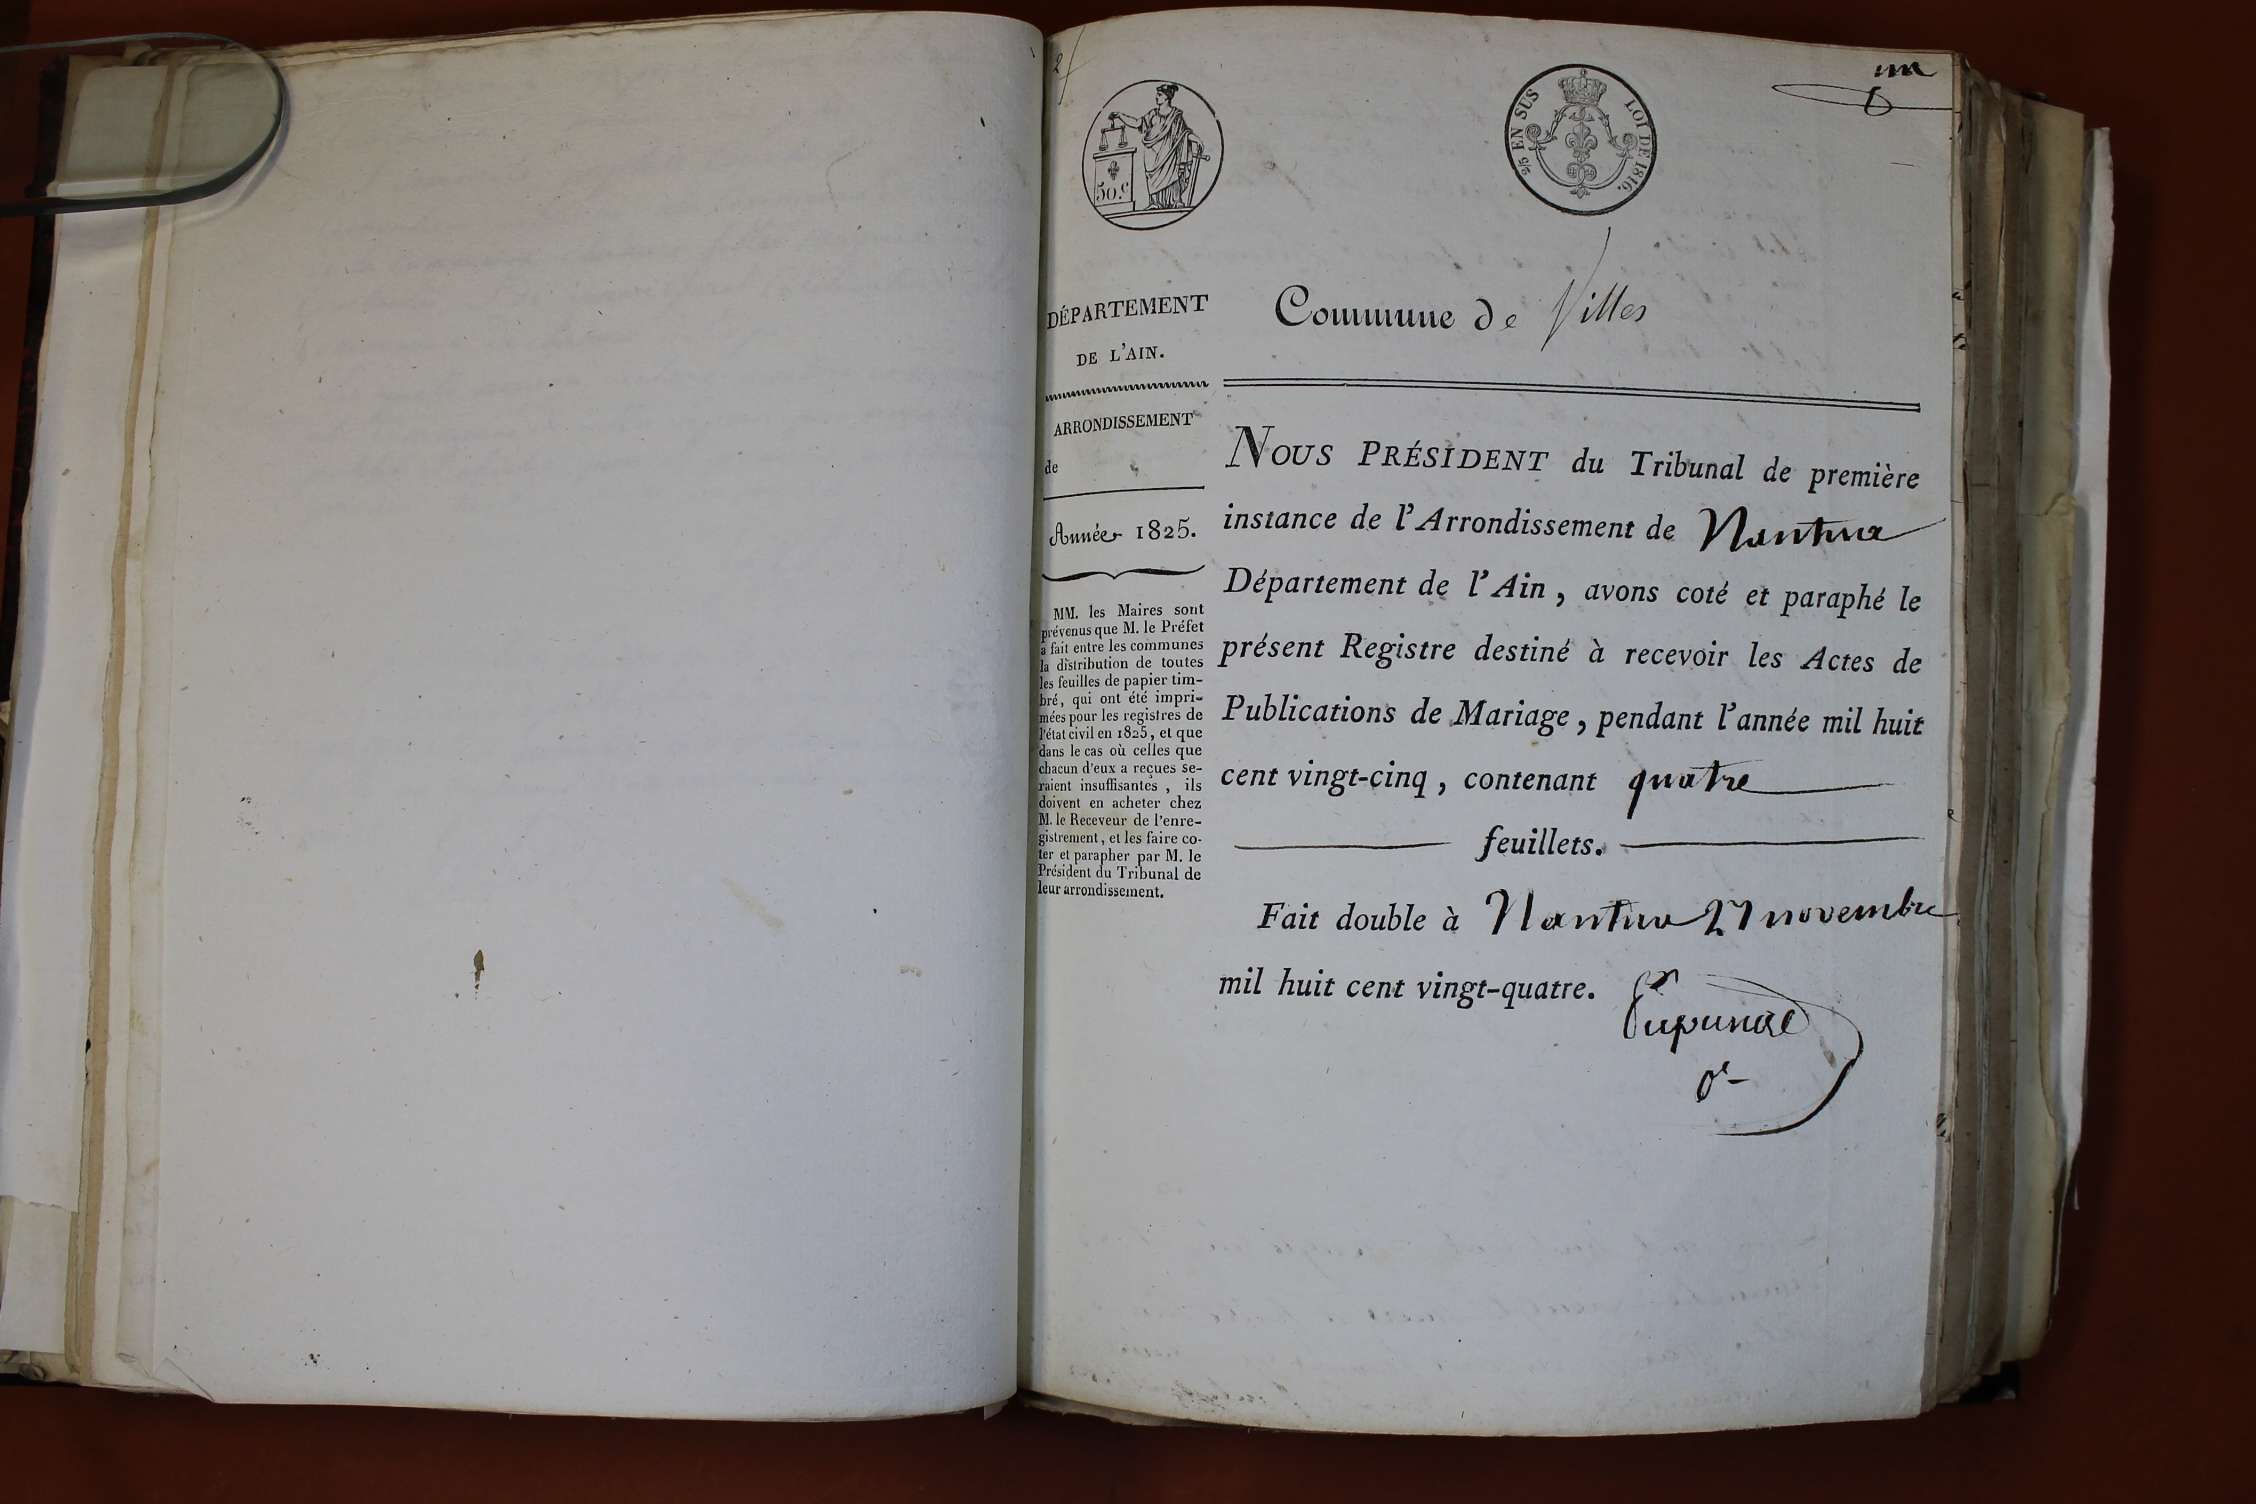 un
50.c
2/5 EN SUS
LOI DE 1816.
DÉPARTEMENT
DE L'AIN.
ARRONDISSEMENT
de
Année 1825.
MM. les Maires sont
prévenus que M. le Préfet
a fait entre les communes
la distribution de toutes
les feuilles de papier tim-
bré, qui ont été impri-
mées pour les registres de
l'état civil en 1825, et que
dans le cas où celles que
chacun d'eux a reçues se-
raient insuffisantes, ils
doivent en acheter chez
M. le Receveur de l'enre-
gistrement, et les faire co-
ter et parapher par M. le
Président du Tribunal de
leur arrondissement.
Commune de Villes
NOUS PRÉSIDENT du Tribunal de première
instance de l'Arrondissement de Nantua
Département de l'Ain, avons coté et paraphé le
présent Registre destiné à recevoir les Actes de
Publications de Mariage, pendant l'année mil huit
cent vingt-cinq, contenant quatre
feuillets.
Fait double à Nantua 27 novembre
mil huit cent vingt-quatre.